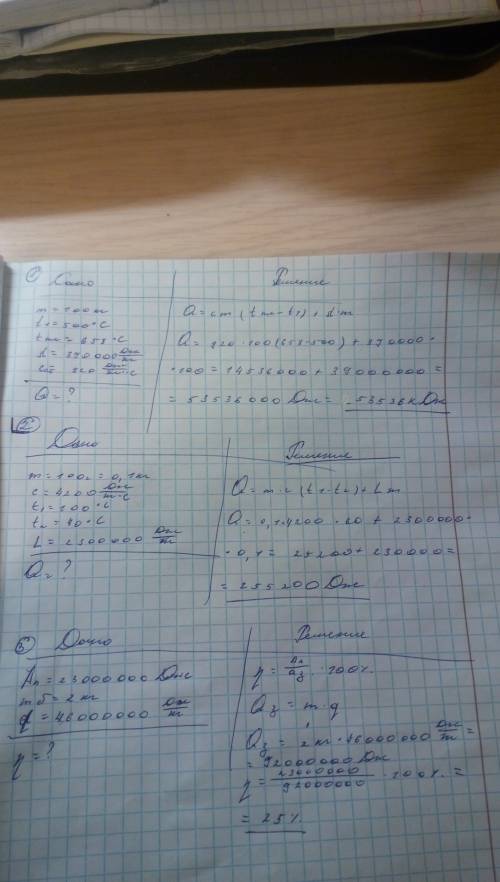 ① Дано Решение
m = 100 кг
t₁ = 500 °C
tпл = 658 °C
λ = 390000 Дж/кг
cал 920 Дж/кг·°C
Q = ?
Q = cm (tпл - t₁) + λ·m
Q = 920 · 100 (658-500) + 390000 ·
· 100 = 14536000 + 39000000 =
= 53536000 Дж = 53536 кДж
② Дано Решение
m = 100г = 0,1 кг
c = 4200 Дж/кг·°C
t₁ = 100 °C
t₂ = 40 °C
L = 2300000 Дж/кг
Q = ?
Q = m·c (t₁-t₂) + L m
Q = 0,1·4200 · 60 + 2300000 ·
· 0,1 = 25200 + 230000 =
= 255200 Дж
③ Дано Решение
Aп = 23000000 Дж
m б = 2 кг
q = 46000000 Дж/кг
η = ?
η = Aп/Qз · 100%
Qз = m·q
Qз = 2 кг · 46000000 Дж/кг =
= 92000000 Дж
η = 23000000/92000000 · 100% =
= 25%